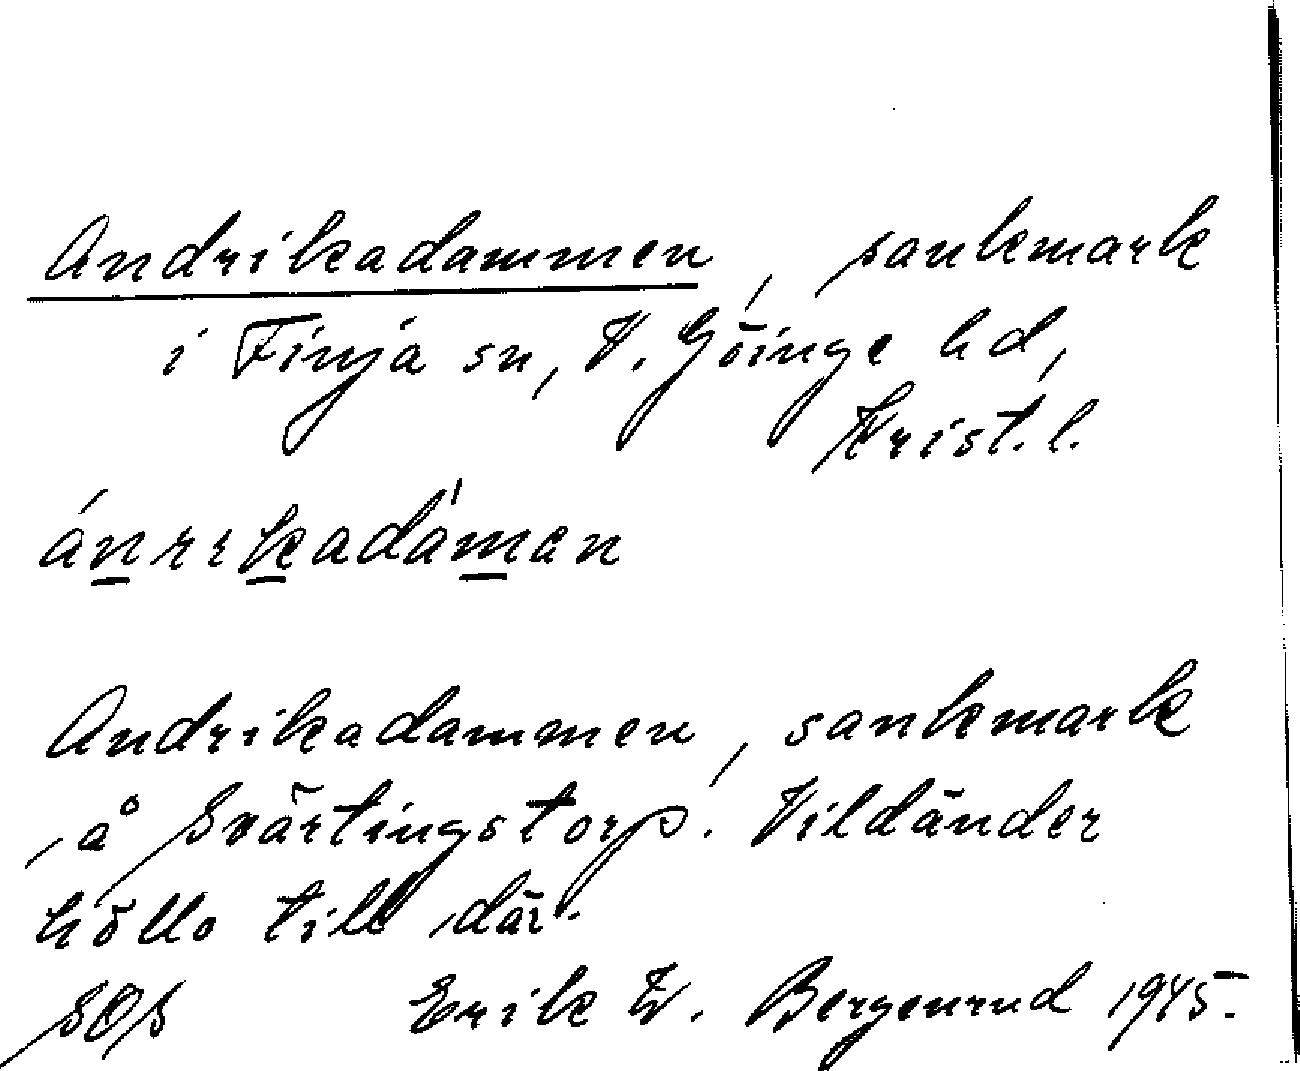 Andrikadammen, sankmark
i Finja sn, V. Göinge hd,
Krist. l.
ánrikadámen
Andrikadammen, sankmark
å Svärtingstorp. Vildänder
höllo till där.
Erik W. Bergenrud 1945.